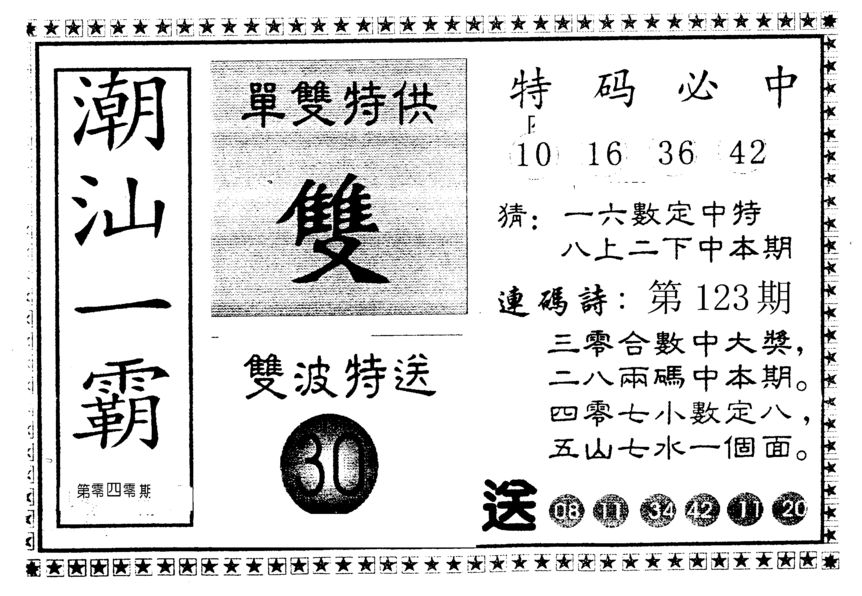 潮汕一霸
第零四零期
單雙特供
雙
雙波特送
30
特码必中
10 16 36 42
猜：一六數定中特
八上二下中本期
連碼詩：第123期
三零合數中大獎，
二八兩碼中本期。
四零七小數定八，
五山七水一個面。
送 08 11 34 42 11 20